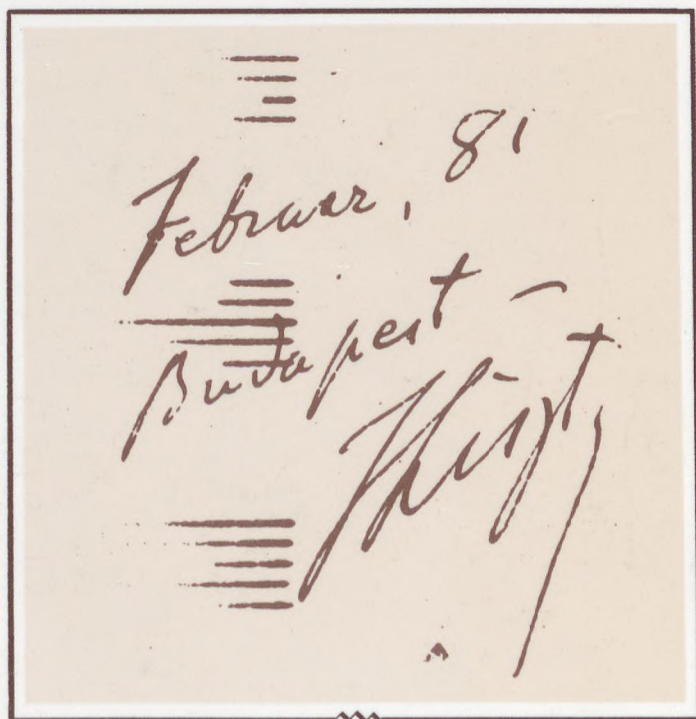 Februar, 81
Budapest –
FLiszt